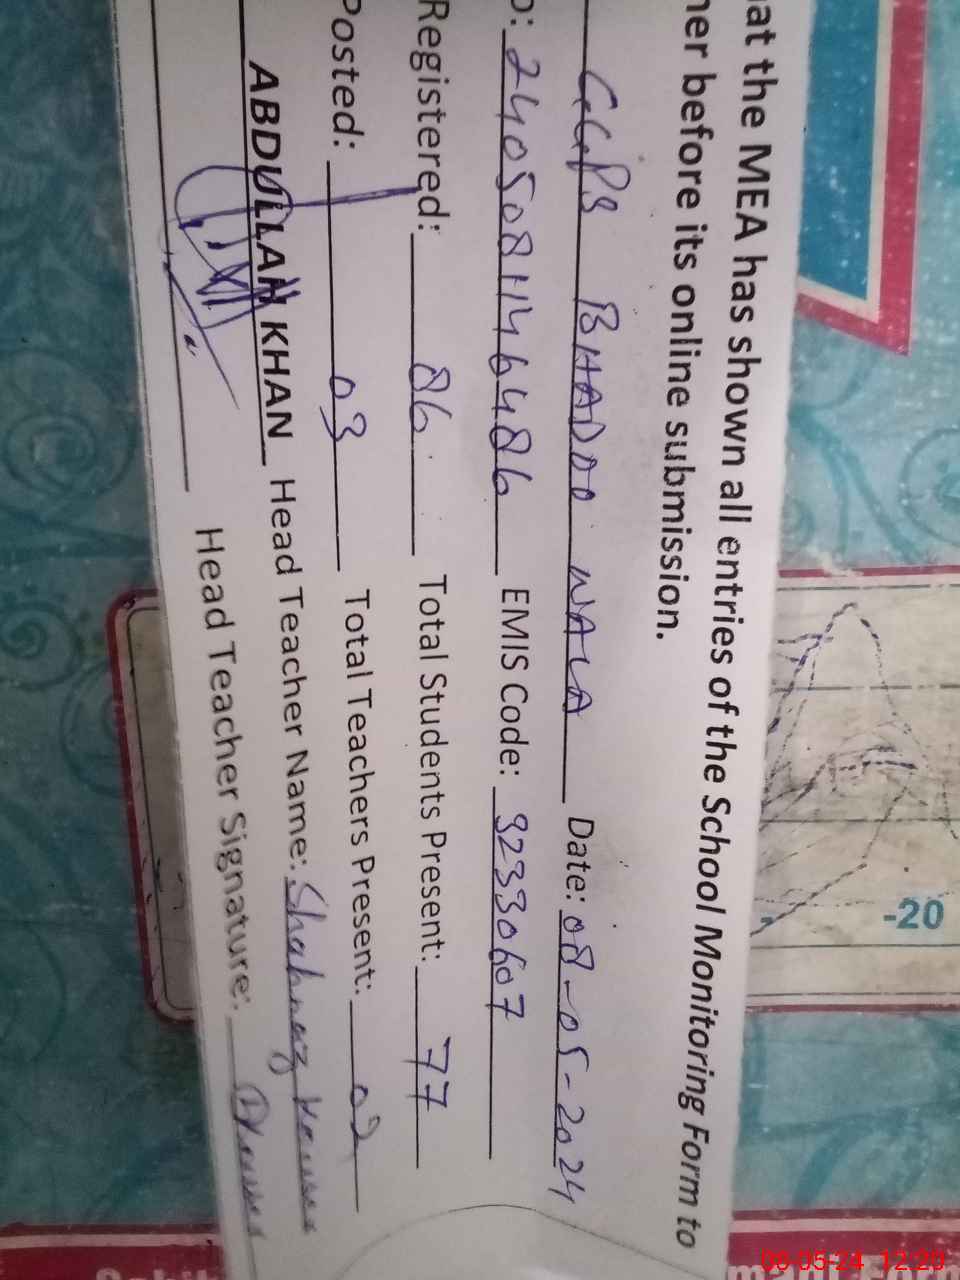 hat the MEA has shown all entries of the School Monitoring Form to
her before its online submission.
GGPS BHADOO WALA Date: 08-05-2024
D: 2405081146486 EMIS Code: 32330607
Registered: 86 Total Students Present: 77
Posted: 03 Total Teachers Present: 02
ABDULLAH KHAN Head Teacher Name: Shahnaz
Head Teacher Signature:
-20
08-05-24 12:20